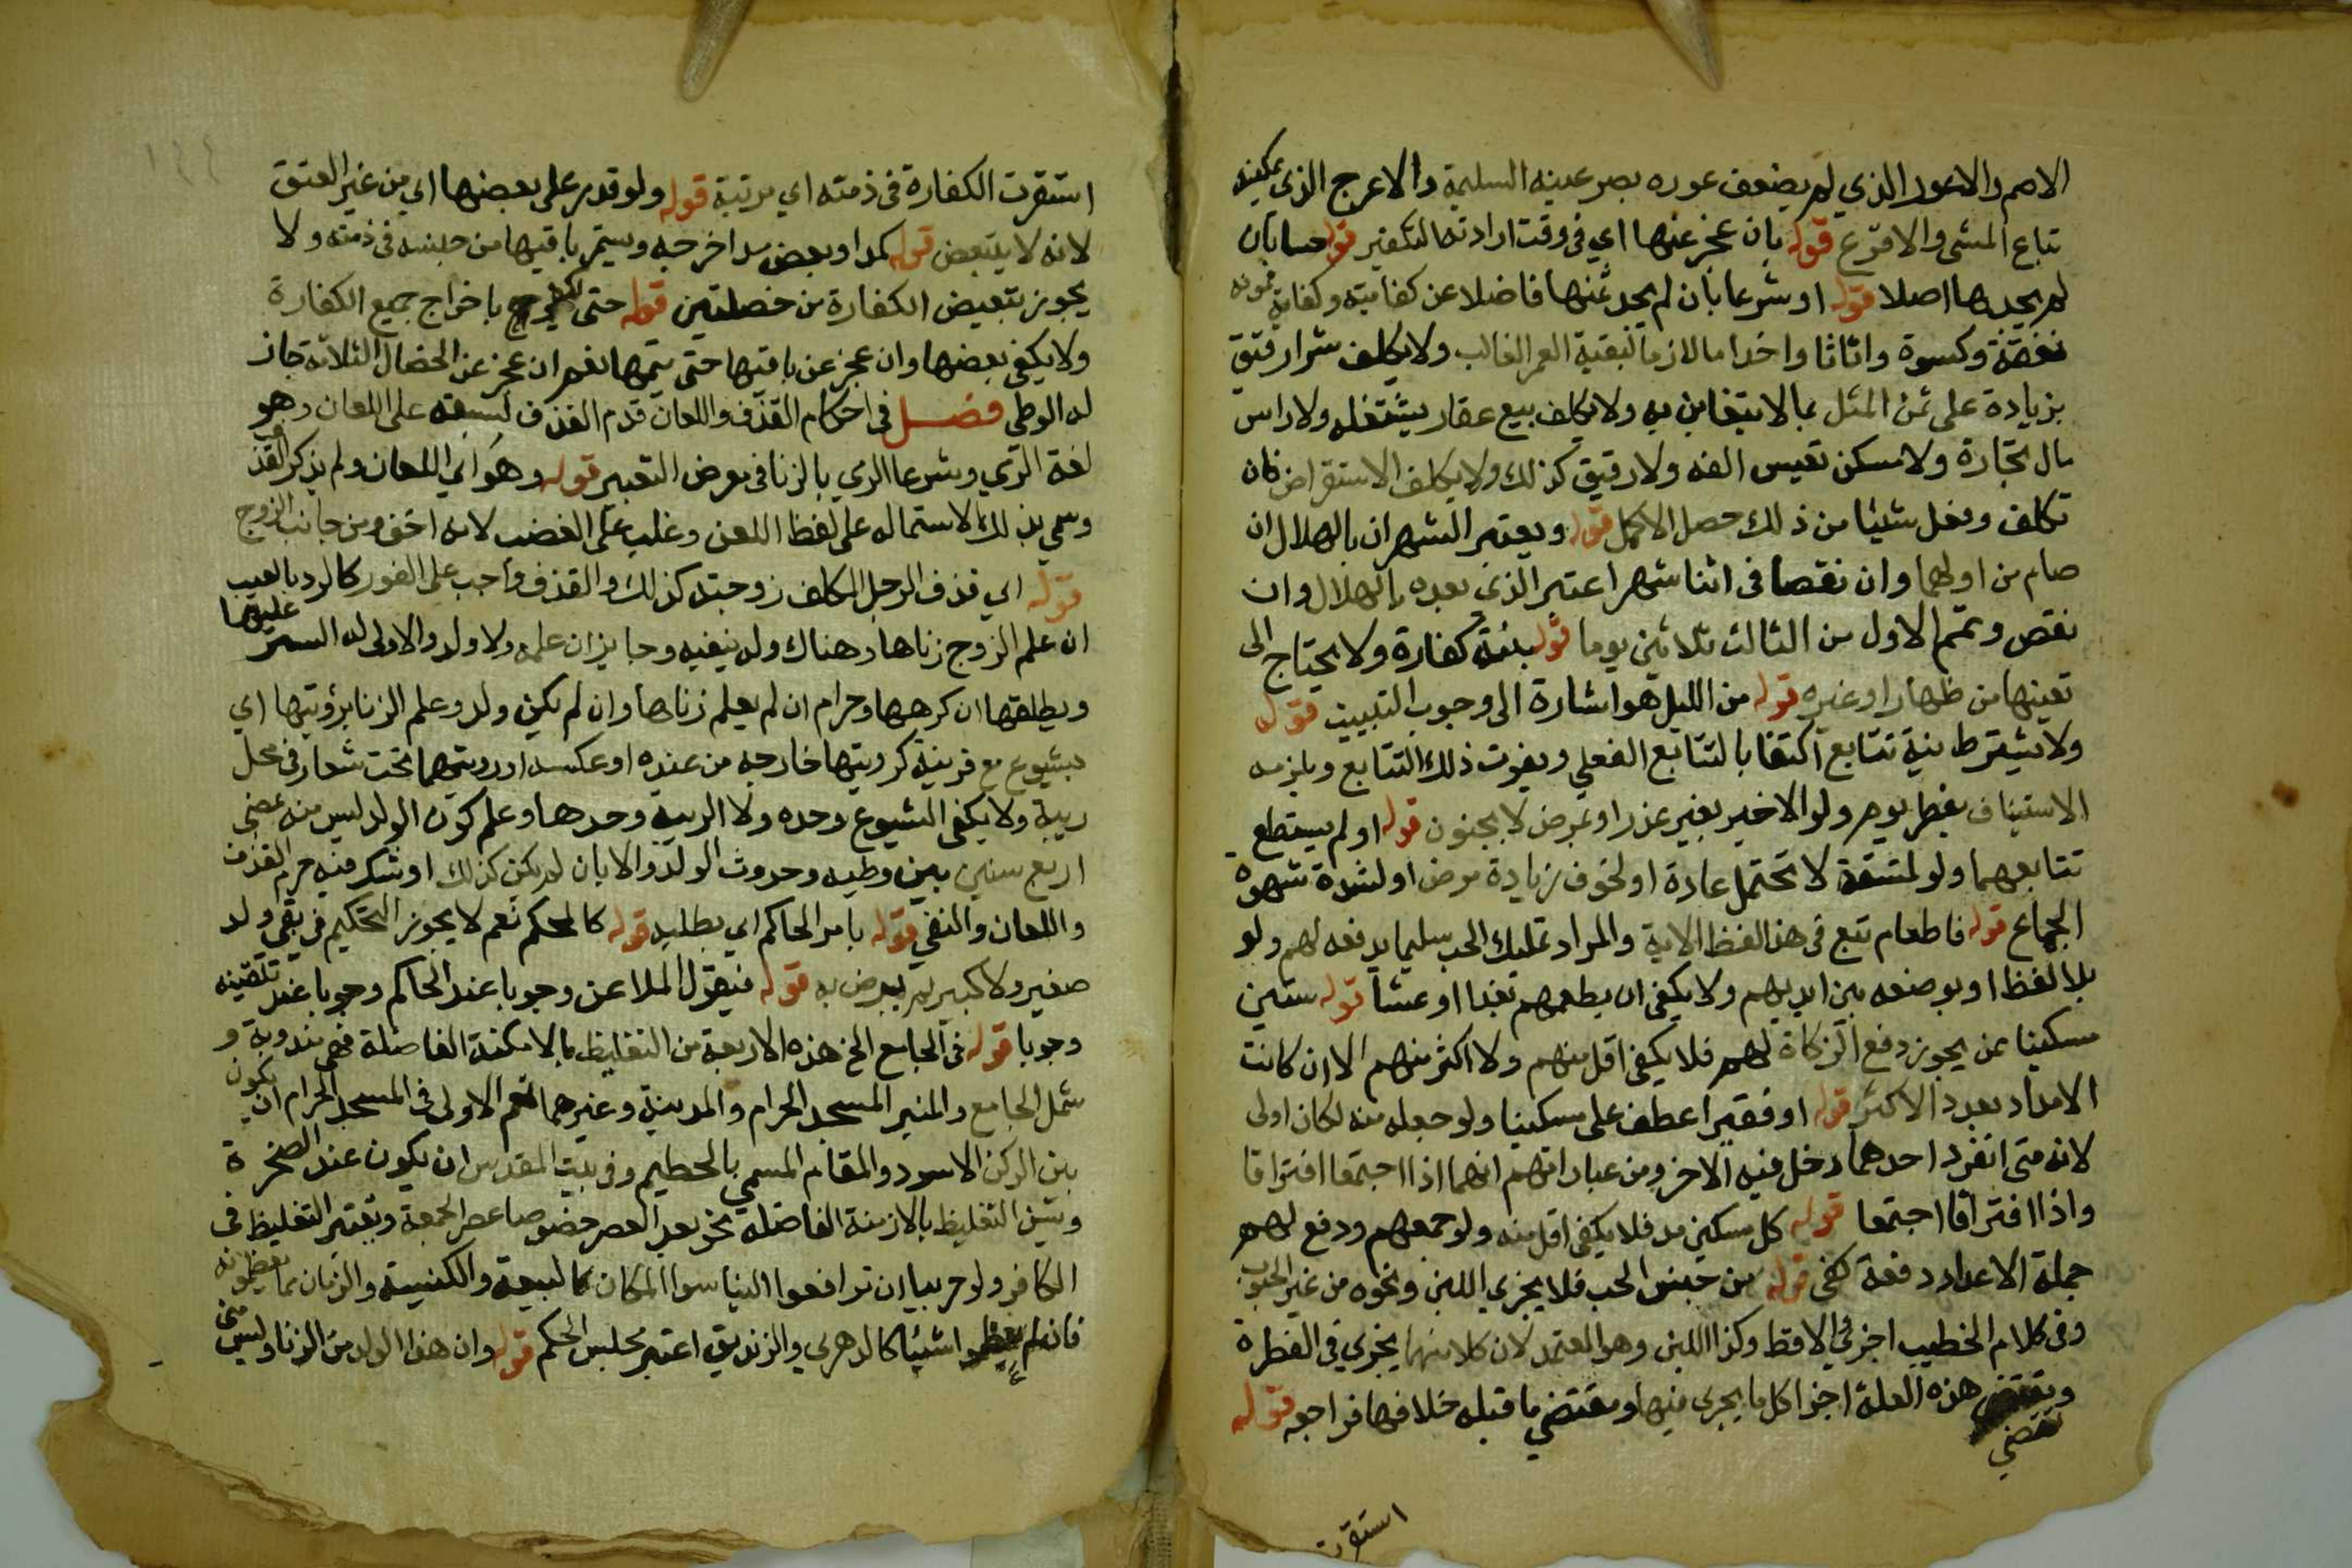 الاصم والاعور الذي لم يضعف عوره بصر عينه السليمة والاعرج الذي يمكنه
تباع المشي والاقرع قوله بان عجز عنها اي في وقت ارادته التكفير قوله حسا بان
لم يجدها اصلا قوله او شرعا بان لم يجد ثمنها فاضلا عن كفايته وكفاية ممونه
نفقة وكسوة واثاثا واخداما لازما لبقية العمر الغالب ولا يكلف شرا رقيق
بزيادة على ثمن المثل بما لا يتغابن به ولا يكلف بيع عقار يشتغله ولا راس
مال تجارة ولا مسكن نفيس الفه ولا رقيق كذلك ولا يكلف الاستقراض فان
تكلف وفعل شيئا من ذلك حصل الاكمل قوله ويعتبر الشهران بالهلال ان
صام من اولهما وان نقصا في اثنا شهر اعتبر الذي بعده بالهلال وان
نقص وتمم الاول من الثالث ثلاثين يوما قوله بنية كفارة ولا يحتاج الى
تعيينها من ظهار او غيره قوله من الليل هو اشارة الى وجوب التبييت قوله
ولا يشترط نية تتابع اكتفا بالتتابع الفعلي ويفوت ذلك التتابع ويلزمه
الاستيناف بفطر يوم ولو الاخير بغير عذر او بمرض لا بجنون قوله او لم يستطع
تتابعهما ولو لمشقة لا تحتمل عادة او لخوف زيادة مرض او لشدة شهوة
الجماع قوله فاطعام تبع في هذا لفظ الاية والمراد تمليك الحب سليما يدفعه لهم ولو
بلا لفظ او بوضعه بين ايديهم ولا يكفي ان يطعمهم بغدا او عشا قوله ستين
مسكينا ممن يجوز دفع الزكاة لهم فلا يكفي اقل منهم ولا اكثر منهم الا ان كانت
الامداد بعدد الاكثر قوله او فقيرا عطف على مسكينا ولو جعله منه لكان اولى
لانه متى انفرد احدهما دخل فيه الاخر ومن عباراتهم انهما اذا اجتمعا افترقا
واذا افترقا اجتمعا قوله كل مسكين مد فلا يكفي اقل منه ولو جمعهم ودفع لهم
جملة الاعداد دفعة كفى قوله من جنس الحب فلا يجزي اللبن ونحوه من غير الحبوب
وفي كلام الخطيب اجزا الاقط وكذا اللبن وهو المعتمد لان كلا منهما يجزي في الفطرة
وتقتضي هذه العلة اجزا كل ما يجزى فيها ومقتضي ما قبله خلافها فراجعه قوله
تقتضي
استقرت
استقرت الكفارة في ذمته اي مرتبة قوله ولو قدر على بعضها اي من غير العتق
لانه لا يتبعض قوله كمد او بعض مد اخرجه ويستمر باقيها من جنسه في ذمته ولا
يجوز تبعيض الكفارة من خصلتين قوله حتى يكفر باخراج جميع الكفارة
ولا يكفي بعضها وان عجز عن باقيها حتى يتمها نعم ان عجز عن الخصال الثلاثة جاز
له الوطي فصل في احكام القذف واللعان قدم القذف لسبقه على اللعان وهو
لغة الرمي وشرعا الرمي بالزنا في معرض التعيير قوله وهو اي اللعان ولم يذكر القذف
وسمي بذلك لاشتماله على لفظ اللعن وغلب على الغضب لانه اخف ومن جانب الزوج
قوله اي قذف الرجل المكلف زوجته كذلك والقذف واجب على الفور كالرد بالعيب
ان علم الزوج زناها وهناك ولد ينفيه وجايز ان علمه ولا ولد والاولى له الستر عليهما
ويطلقها ان كرهها وحرام ان لم يعلم زناها وان لم يكن ولد وعلم الزنا برؤيتها اي
بشيوع مع قرينة كرويتها خارجة من عنده او عكسه او رويتهما تحت شعار في محل
ريبة ولا يكفي الشيوع وحده ولا الريبة وحدها وعلم كون الولد ليس منه بمضي
اربع سنين بين وطيه وحدوث الولد والا بان لم يكن كذلك او شك فيه حرم القذف
واللعان والنفي قوله بامر الحاكم اي بطلبه قوله كالمحكم نعم لا يجوز التحكيم في نفي ولد
صغير ولا كبير لم يرض به قوله فيقول الملاعن وجوبا عند الحاكم وجوبا عند تلقينه
وجوبا قوله في الجامع الخ هذه الاربعة من التغليظ بالامكنة الفاضلة فهي مندوبة و
شمل الجامع والمنبر المسجد الحرام والمدينة وغيرهما نعم الاولى في المسجد الحرام ان يكون
بين الركن الاسود والمقام المسمي بالحطيم وفي بيت المقدس ان يكون عند الصخرة
ويسن التغليظ بالازمنة الفاضلة نحو بعد العصر خصوصا عصر الجمعة ويعتبر التغليظ في
الكافر ولو حربيا ان ترافعوا الينا سوا المكان كالبيعة والكنيسة والزمان مما يعظمونه
فان لم يعظموا شيئا كالدهري والزنديق اعتبر مجلس الحكم قوله وان هذا الولد من الزنا وليس مني